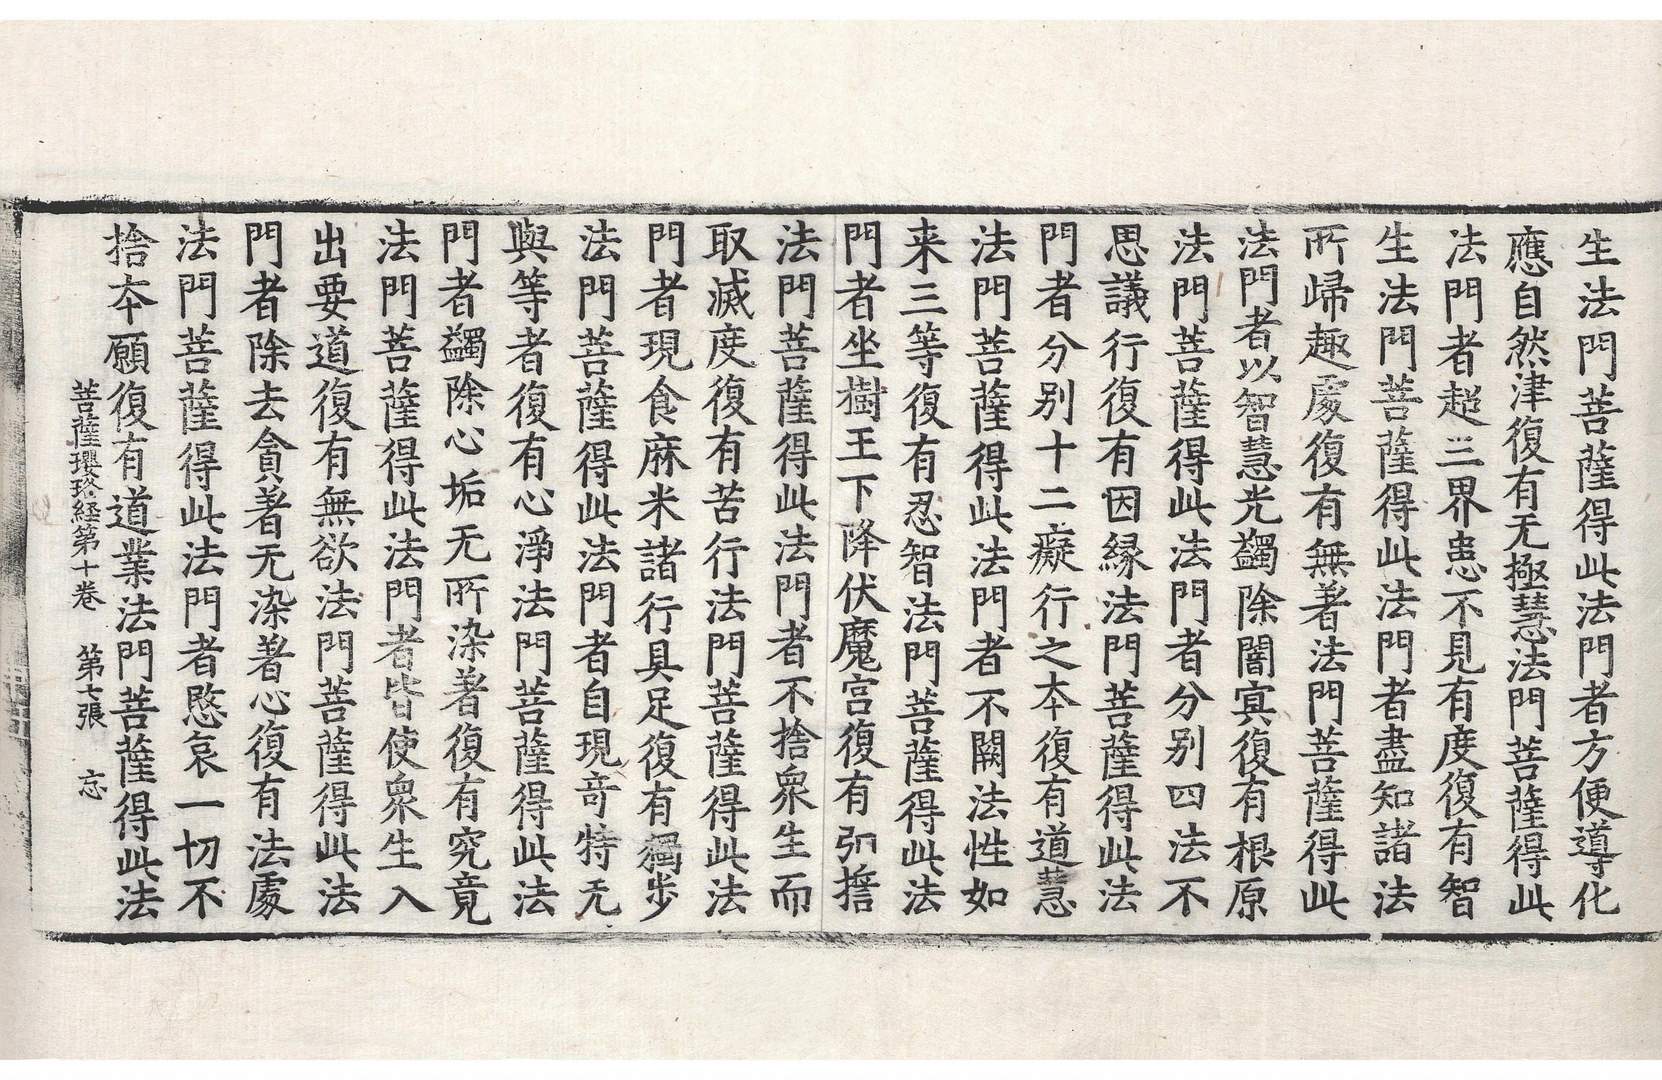 生法門菩薩得此法門者方便導化
應自然津復有无極慧法門菩薩得此
法門者超三界患不見有度復有智
生法門菩薩得此法門者盡知諸法
所歸趣處復有無著法門菩薩得此
法門者以智慧光蠲除闇冥復有根原
法門菩薩得此法門者分别四法不
思議行復有因縁法門菩薩得此法
門者分别十二癡行之本復有道慧
法門菩薩得此法門者不闕法性如
来三等復有忍智法門菩薩得此法
門者坐樹王下降伏魔宫復有弘擔
法門菩薩得此法門者不捨衆生而
取滅度復有苦行法門菩薩得此法
門者現食麻米諸行具足復有獨步
法門菩薩得此法門者自現竒特无
與等者復有心淨法門菩薩得此法
門者蠲除心垢无所染著復有究竟
法門菩薩得此法門者皆使衆生入
出要道復有無欲法門菩薩得此法
門者除去貪著无染著心復有法處
法門菩薩得此法門者愍哀一切不
捨本願復有道業法門菩薩得此法
菩薩瓔珞経第十卷 第七張 忘